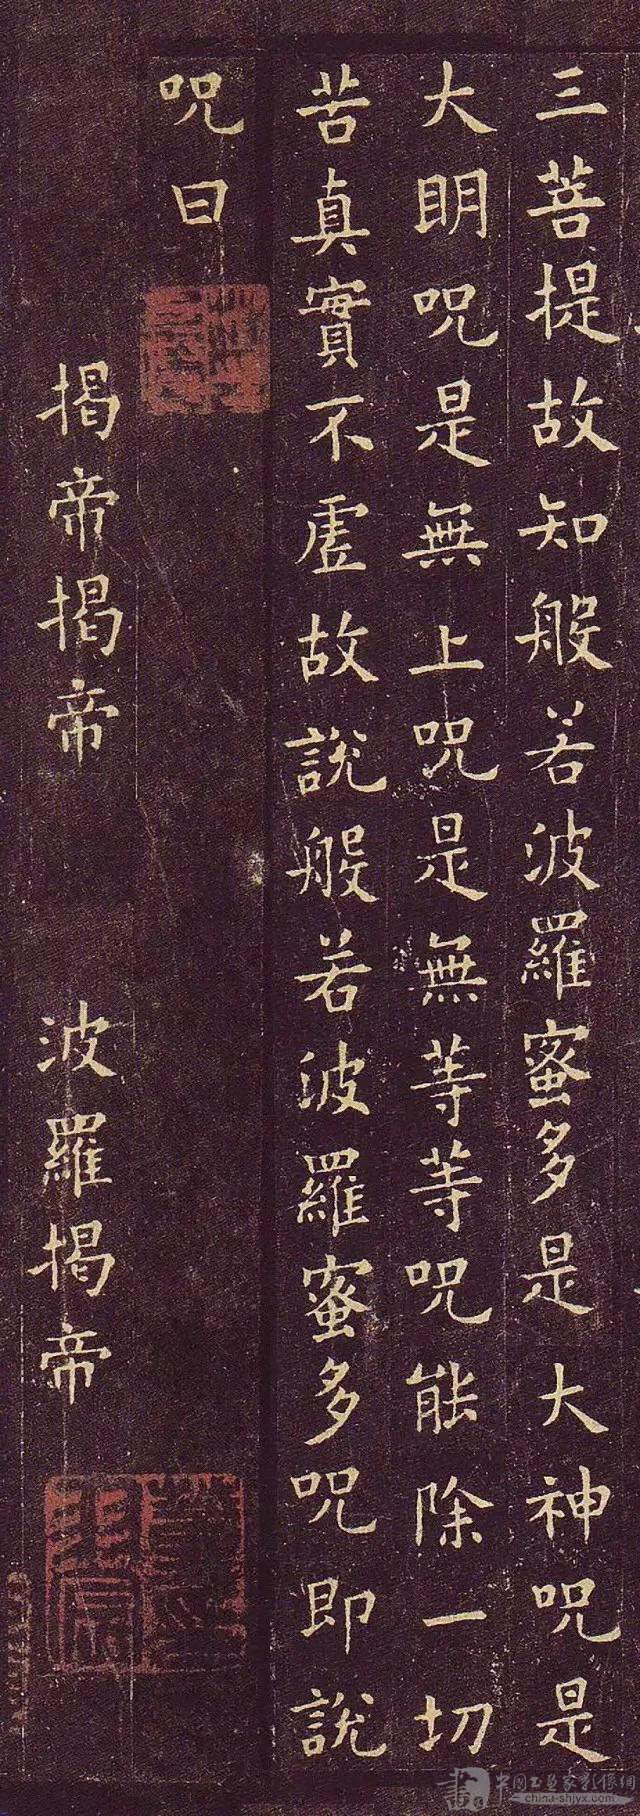 三菩提故知般若波羅蜜多是大神呪是
大明呪是無上呪是無等等呪能除一切
苦真實不虛故說般若波羅蜜多呪即說
呪曰
揭帝揭帝 波羅揭帝
中國書畫家影像網
china-shjyx.com